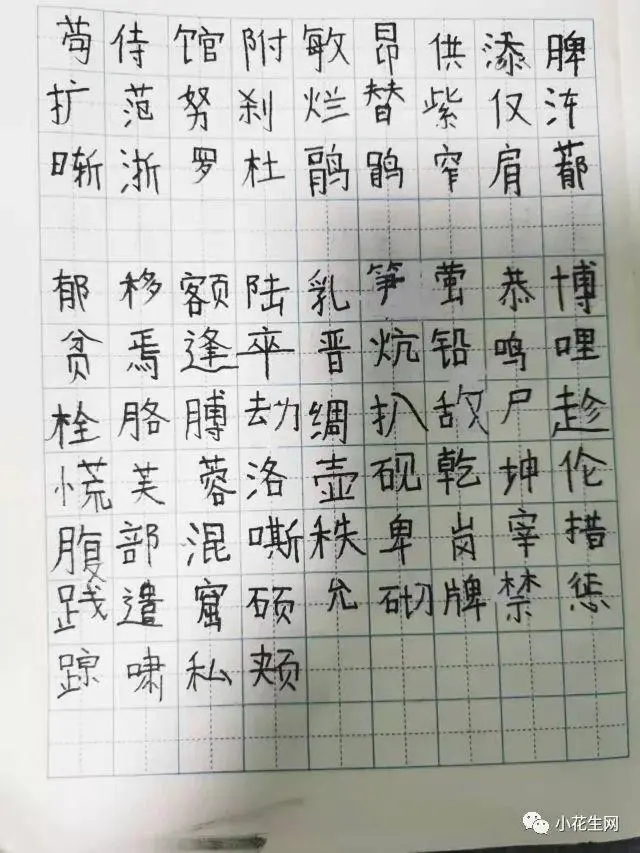 苟侍馆附敏昂供添脾
扩范努刹烂替紫仅
晰浙罗杜鹃鹃窄肩
郁移额陆乳笋萤恭博
贫焉逢卒晋炕铅鸣哩
栓胳膊劫绸扒敌尸趁
慌芙蓉洛壶砚乾坤伦
腹部混嘶秩卑岗宰措
践遣窟硕允砌牌禁惩
踪啸私颊
小花生网